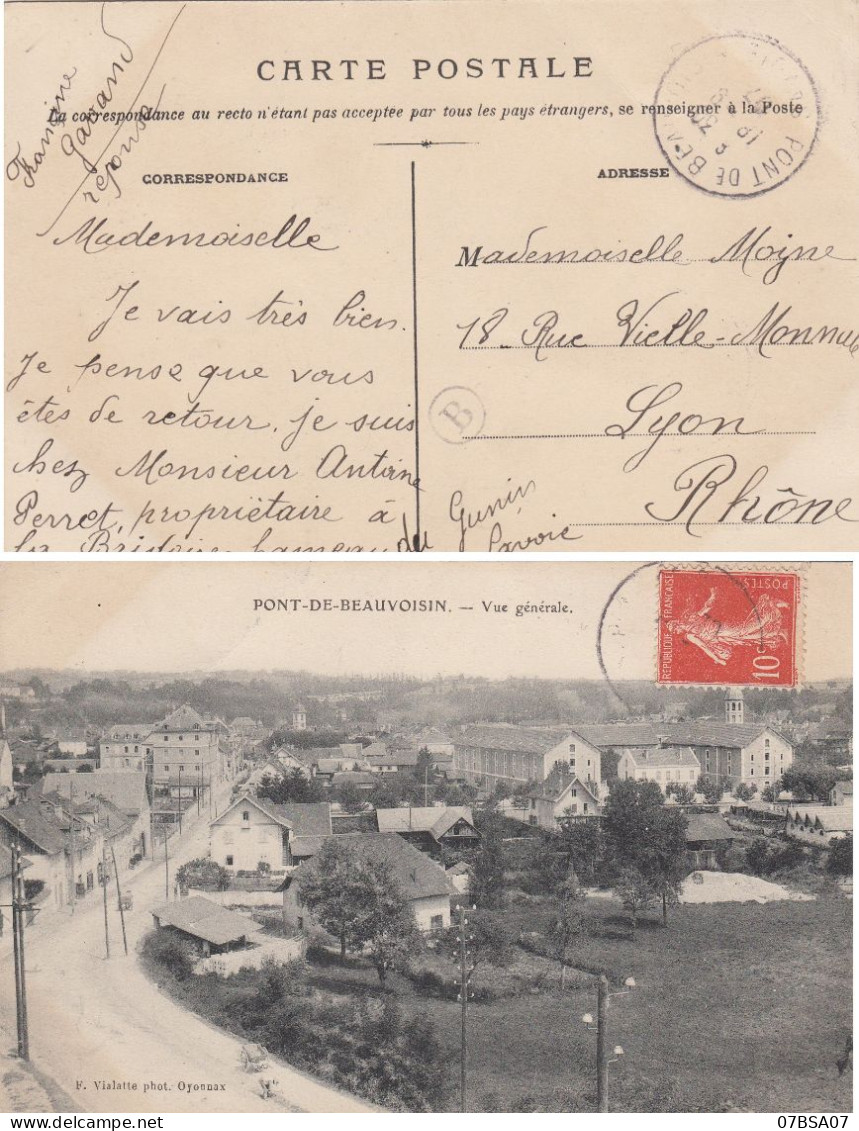 CARTE POSTALE
La correspondance au recto n'étant pas acceptée par tous les pays étrangers, se renseigner à la Poste
Francine
Gavand
réponse
CORRESPONDANCE
Mademoiselle
Je vais très bien.
Je pense que vous
êtes de retour. je suis
chez Monsieur Antoine
Perret, propriétaire à
la Bridoire hameau
du Gunin
Savoie
ADRESSE
PONT DE BEAUVOISIN
Mademoiselle Moyne
18 Rue Vielle-Monnaie
Lyon
B
Rhône
PONT-DE-BEAUVOISIN. — Vue générale.
REPUBLIQUE FRANÇAISE
POSTES
10 c
F. Vialatte phot. Oyonnax
07BSA07